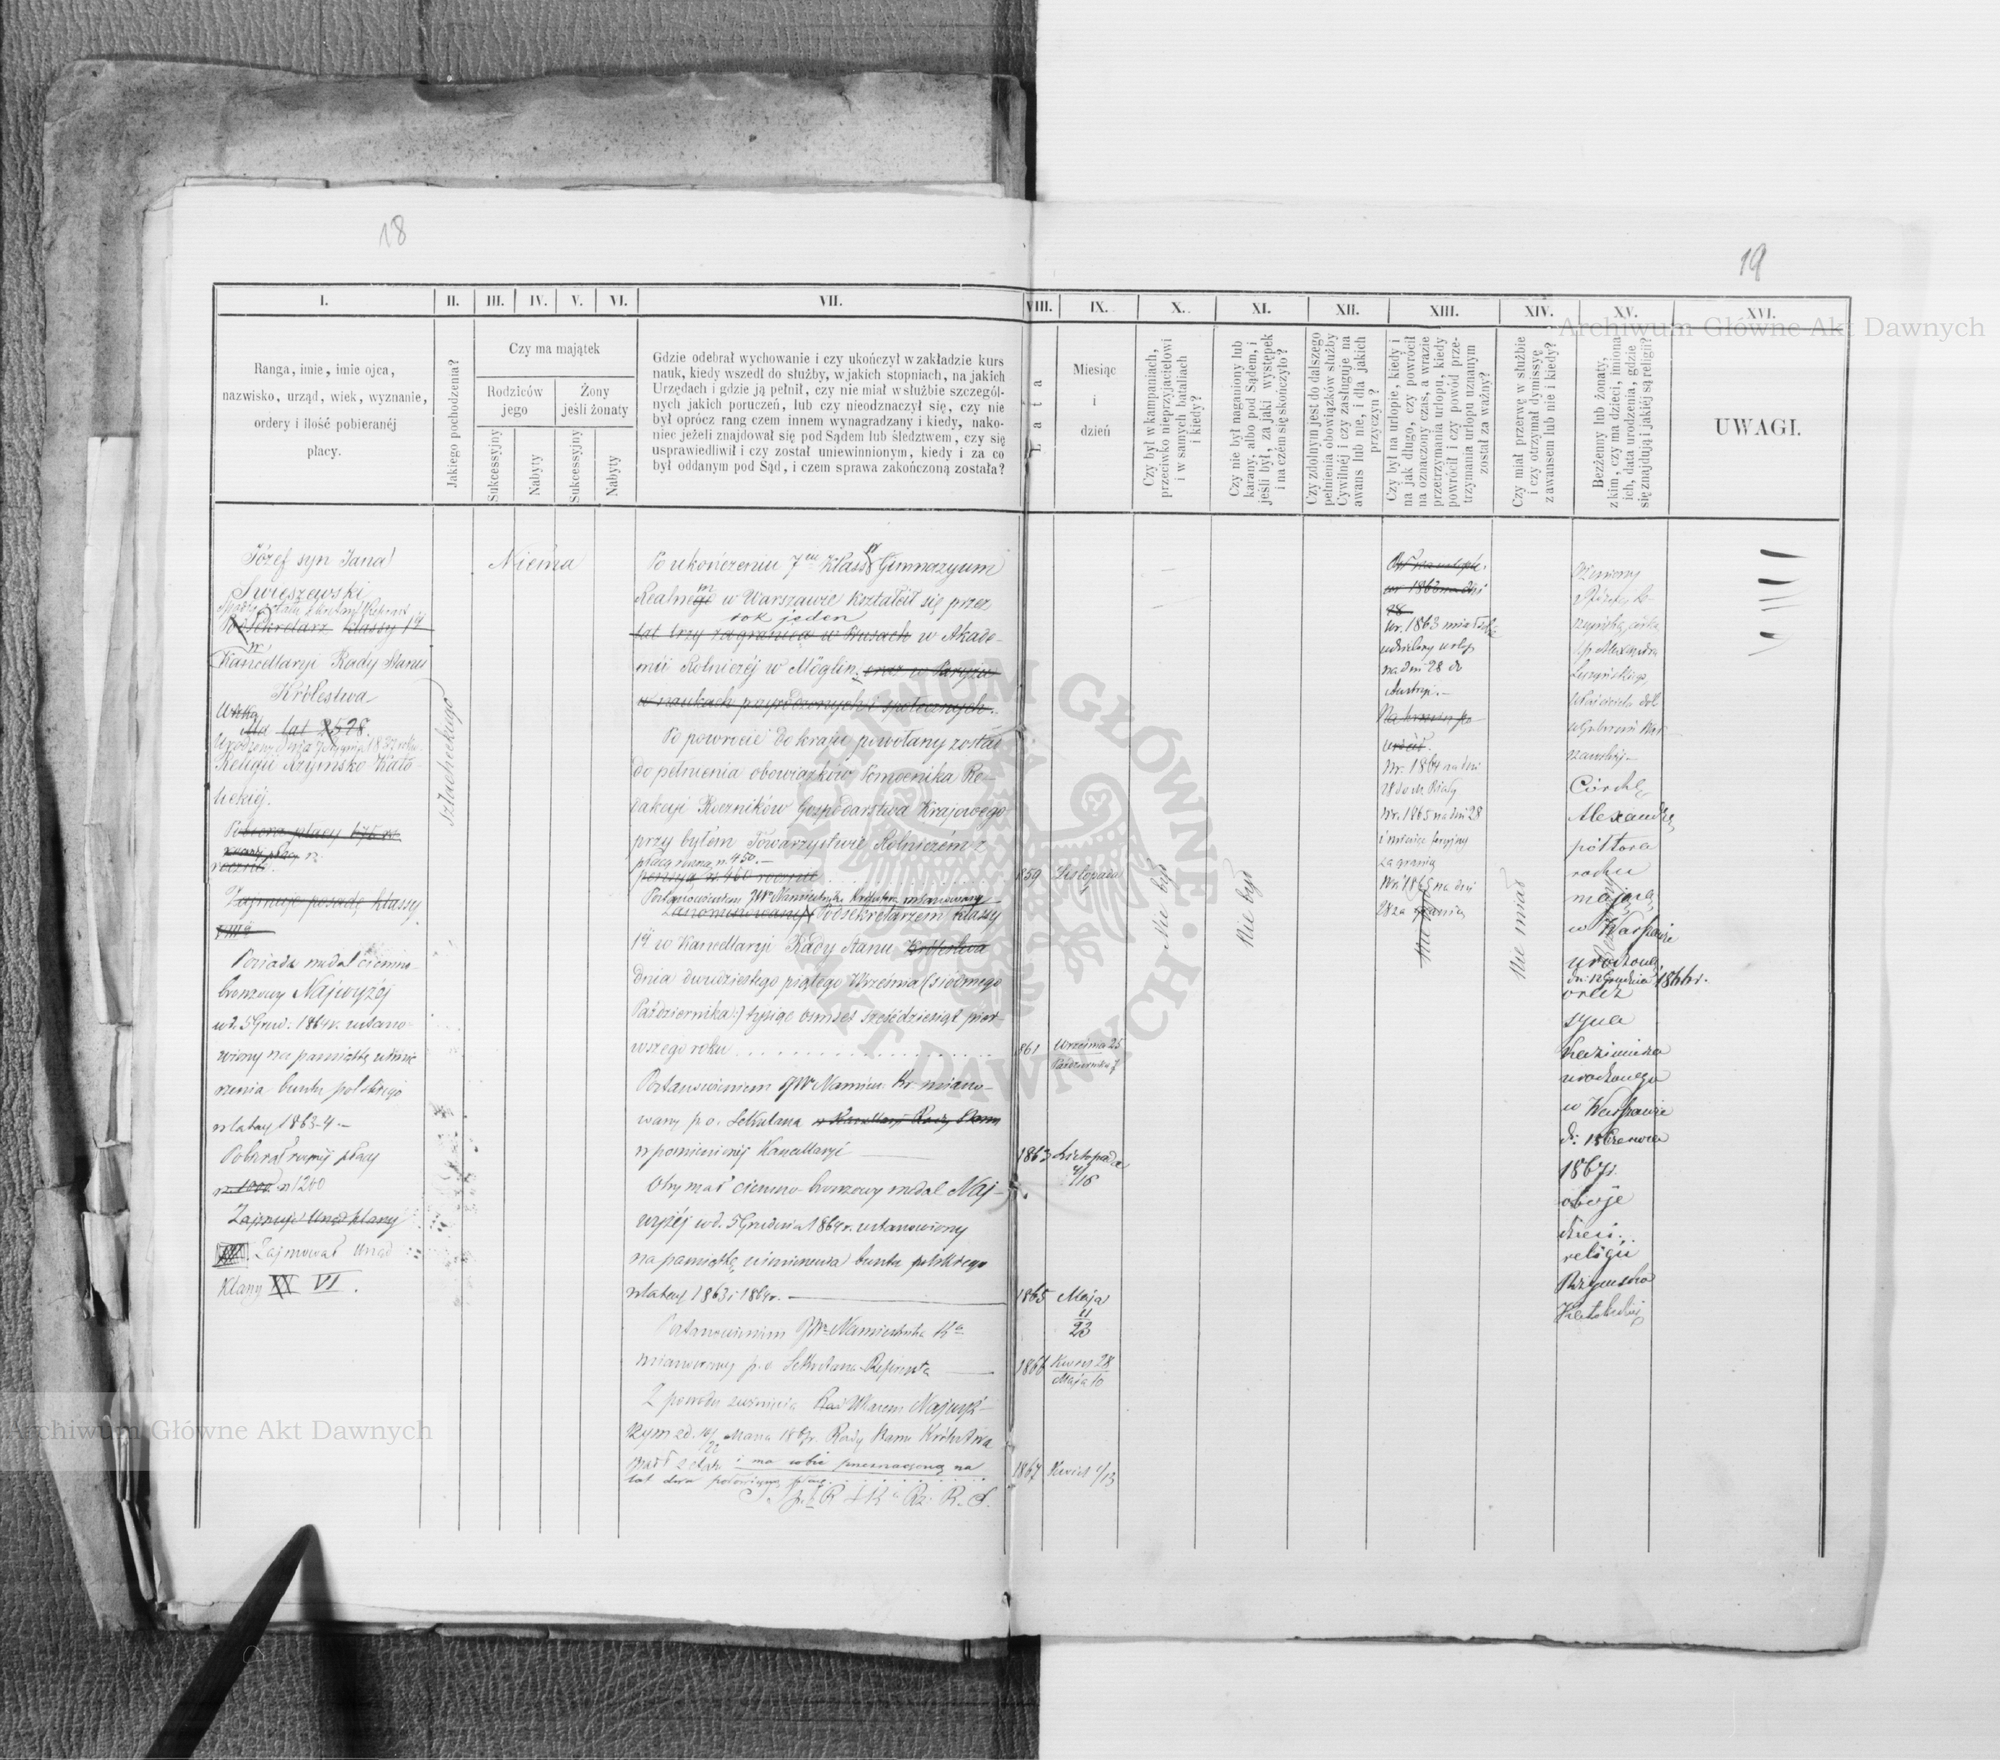 18
19
I.
II.
III.
IV.
V.
VI.
VII.
VIII.
IX.
X.
XI.
XII.
XIII.
XIV.
XV.
XVI.
Ranga, imie, imie ojca,
nazwisko, urząd, wiek, wyznanie,
ordery i ilość pobieranéj
płacy.
Jakiego pochodzenia?
Czy ma majątek
Rodziców
jego
Żony
jeśli żonaty
Sukcessyjny
Nabyty
Sukcessyjny
Nabyty
Gdzie odebrał wychowanie i czy ukończył w zakładzie kurs
nauk, kiedy wszedł do służby, w jakich stopniach, na jakich
Urzędach i gdzie ją pełnił, czy nie miał w służbie szczegól-
nych jakich poruczeń, lub czy nieodznaczył się, czy nie
był oprócz rang czem innem wynagradzany i kiedy, nako-
niec jeżeli znajdował się pod Sądem lub śledztwem, czy się
usprawiedliwił i czy został uniewinnionym, kiedy i za co
był oddanym pod Sąd, i czem sprawa zakończoną została?
Lata
Miesiąc
i
dzień
Czy był w kampaniach,
przeciwko nieprzyjacielowi
i w samych bataliach
i kiedy?
Czy nie był naganiony lub
karany, albo pod Sądem, i
jeśli był, za jaki występek
i na czém się skończyło?
Czy zdolnym jest do dalszego
pełnienia obowiązków służby
Cywilnéj i czy zasługuje na
awans lub nie, i dla jakich
przyczyn?
Czy był na urlopie, kiedy i
na jak długo, czy powrócił
na oznaczony czas, a wrazie
przetrzymania urlopu, kiedy
powrócił i czy powód prze-
trzymania urlopu uznanym
został za ważny?
Czy miał przerwę w służbie
i czy otrzymał dymissyę
z awansem lub nie i kiedy?
Bezżenny lub żonaty,
z kim, czy ma dzieci, imiona
ich, data urodzenia, gdzie
się znajdują i jakiéj są religii?
UWAGI.
Józef syn Jana
Świeszewski
Podsekretarz klassy 1éj
Kancellaryi Rady Stanu
Królestwa
Ma lat 28.
Religii Rzymsko Kato-
lickiéj.
Pobiera płacy 675 rs.
rocznie.
Zajmuje posadę klassy
VIII
Posiada medal ciemno-
bronzowy Najwyżéj
w d. 5 Grud. 1864 r. ustano-
wiony na pamiątkę uśmie-
rzenia buntu polskiego
w latach 1863-4.—
Pobierał rocznéj płacy
rs. 1000 rs 1200
Zajmuje Urząd klassy
Zajmował Urząd
klassy IX VI.
Szlacheckiego
Niema
Po ukończeniu 7miu Klass Gimnazyum
Realnego w Warszawie kształcił się przez
rok jeden
lat trzy zagranicą w Prusach w Akade-
mii Rolniczéj w Möglin, oraz w Paryżu
w naukach przyrodzonych i społecznych.
Po powrocie do kraju powołany został
do pełnienia obowiązków Pomocnika Re-
dakcyi Roczników Gospodarstwa Krajowego
przy byłém Towarzystwie Rolniczém z
płacą roczną rs. 450.—
pensyą rs. 460 rocznie
1859
Listopada
1
Postanowieniem JWo Namiestnika Królestwa mianowany
Zanominowany Podsekretarzem klassy
1éj w Kancellaryi Rady Stanu Królestwa
dnia dwudziestego piątego Września (siódmego
Października) tysiąc ośmset sześćdziesiąt pier-
wszego roku
1861
Września 25
Października 7
Postanowieniem JWo Namies. Kr. miano-
wany p. o. Sekretarza w Kancellaryi Rady Stanu
w pomienionéj Kancellaryi
1863
Listopada
4/16
Otrzymał ciemno-bronzowy medal Naj-
wyżéj w d. 5 Grudnia 1864 r. ustanowiony
na pamiątkę uśmierzenia buntu polskiego
w latach 1863 i 1864 r.
1865
Maja
11
23
Postanowieniem JWo Namiestnika Kr.
mianowany p. o. Sekretarza-Referenta
1866
Kwiet 28
Maja 10
Z powodu zwinięcia Ukazem Najwyż-
szym z d. 10/22 Marca 1867 r. Rady Stanu Królestwa
spadł z etatu i ma sobie przeznaczoną na
lat dwa połowiczną płacę.
1867
Kwiet 1/13
Nie był
Nie był
Był na urlopie
w r. 1863 na dni
28
W r. 1863 miał sobie
udzielony urlop
na dni 28 do
Austryi.—
Na termin po-
wrócił.
W r. 1864 na dni
W r. 1865 na dni 28
i miesiąc feryjny
za granicę
W r. 1865 na dni
28 za granicę
Nie miał
Żeniony
córką
Alexandra
Właściciela dóbr
w Gubernii War-
szawskiéj—
Córkę
Alexandrę
półtora
roku
mającą
w Warszawie
urodzoną
oraz
syna
Kazimierza
urodzonego
w Warszawie
d: 15 Czerwca
1867 r.
oboje
dzieci
religii
Rzymsko
Katolickiéj
Archiwum Główne Akt Dawnych
Archiwum Główne Akt Dawnych
ARCHIWUM GŁÓWNE AKT DAWNYCH